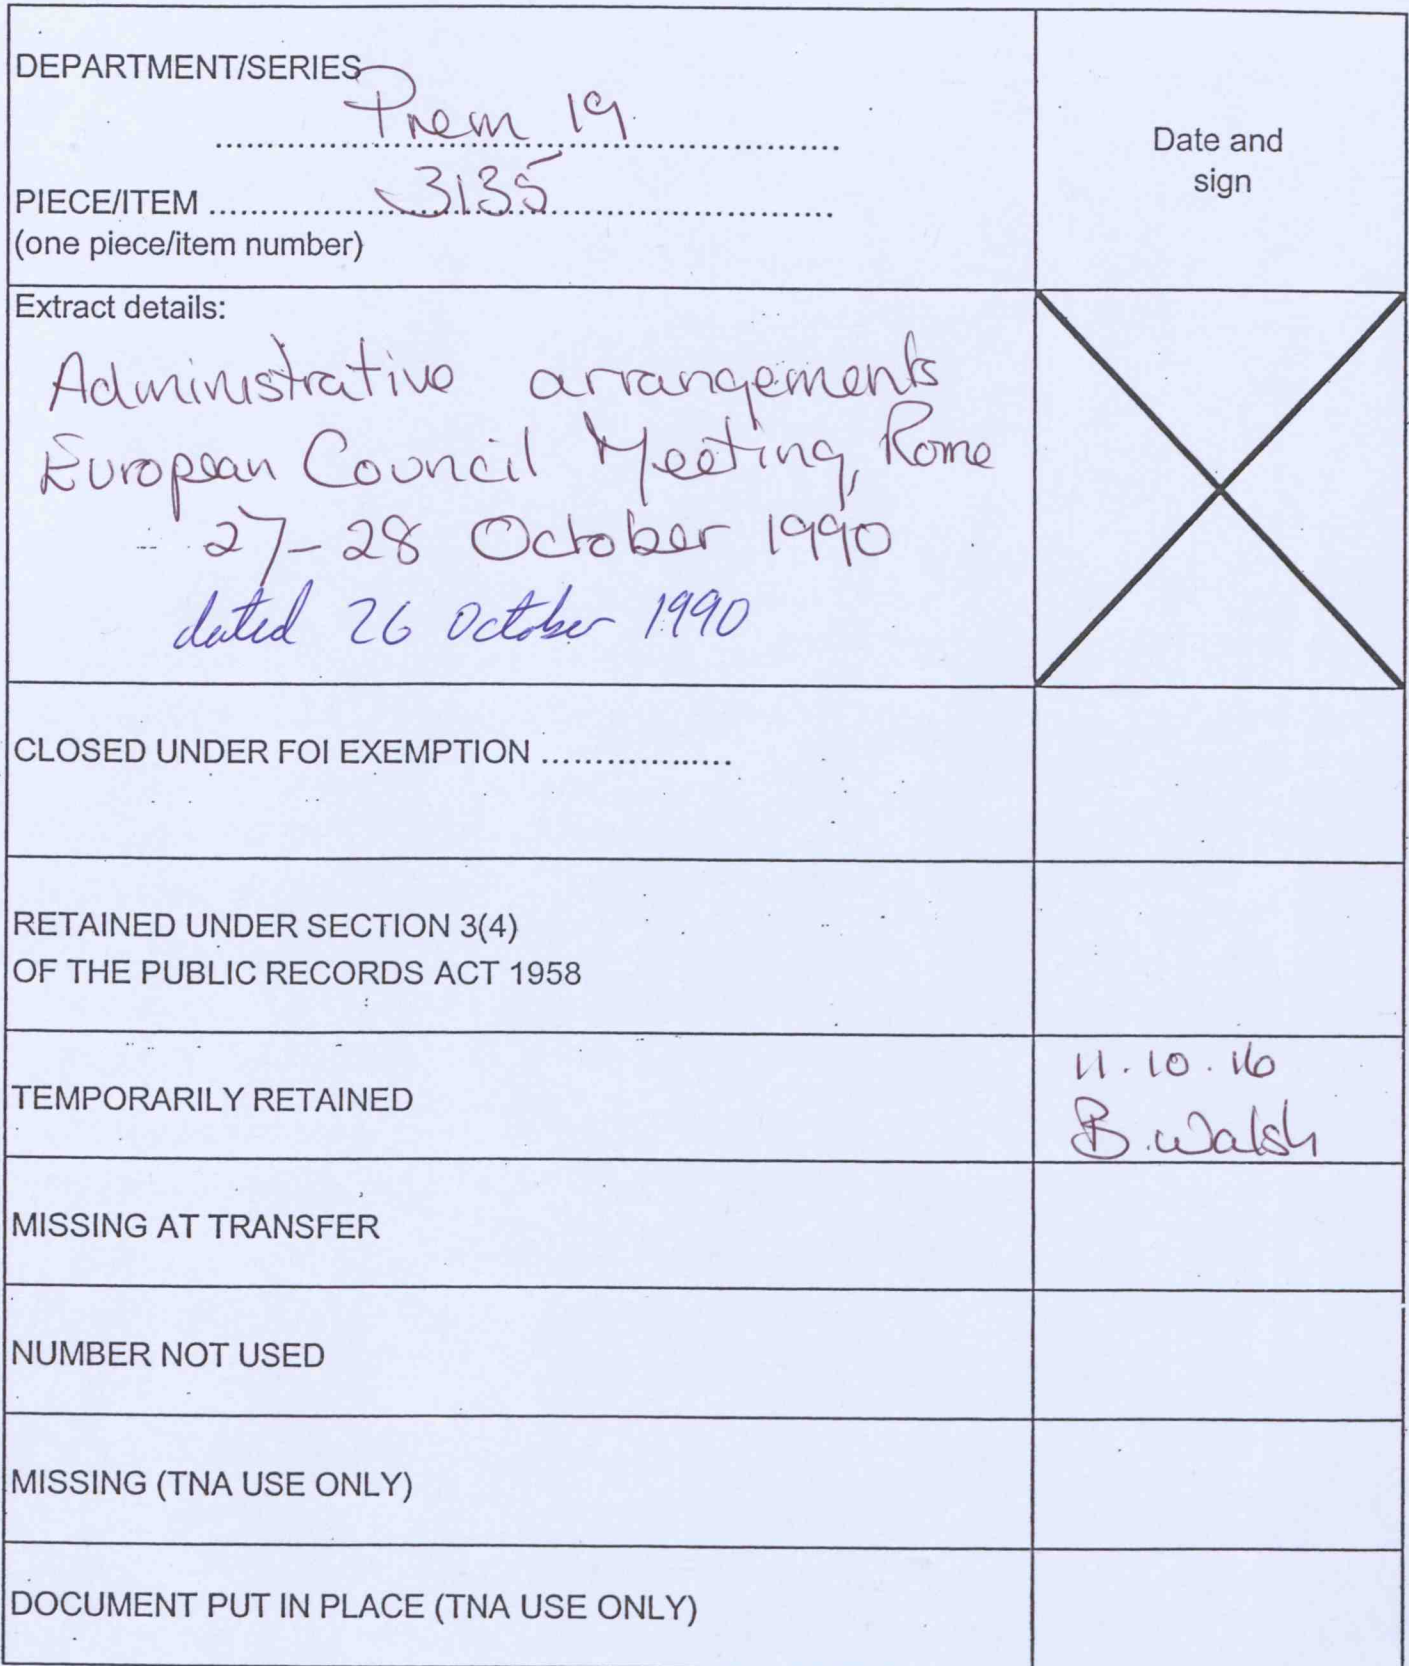 DEPARTMENT/SERIES
Prem 19
Date and
sign
PIECE/ITEM ........ 3135 ........
(one piece/item number)
Extract details:
Administrative arrangements
European Council Meeting, Rome
27-28 October 1990
dated 26 October 1990
CLOSED UNDER FOI EXEMPTION ..................
RETAINED UNDER SECTION 3(4)
OF THE PUBLIC RECORDS ACT 1958
TEMPORARILY RETAINED
11.10.16
B. Walsh
MISSING AT TRANSFER
NUMBER NOT USED
MISSING (TNA USE ONLY)
DOCUMENT PUT IN PLACE (TNA USE ONLY)